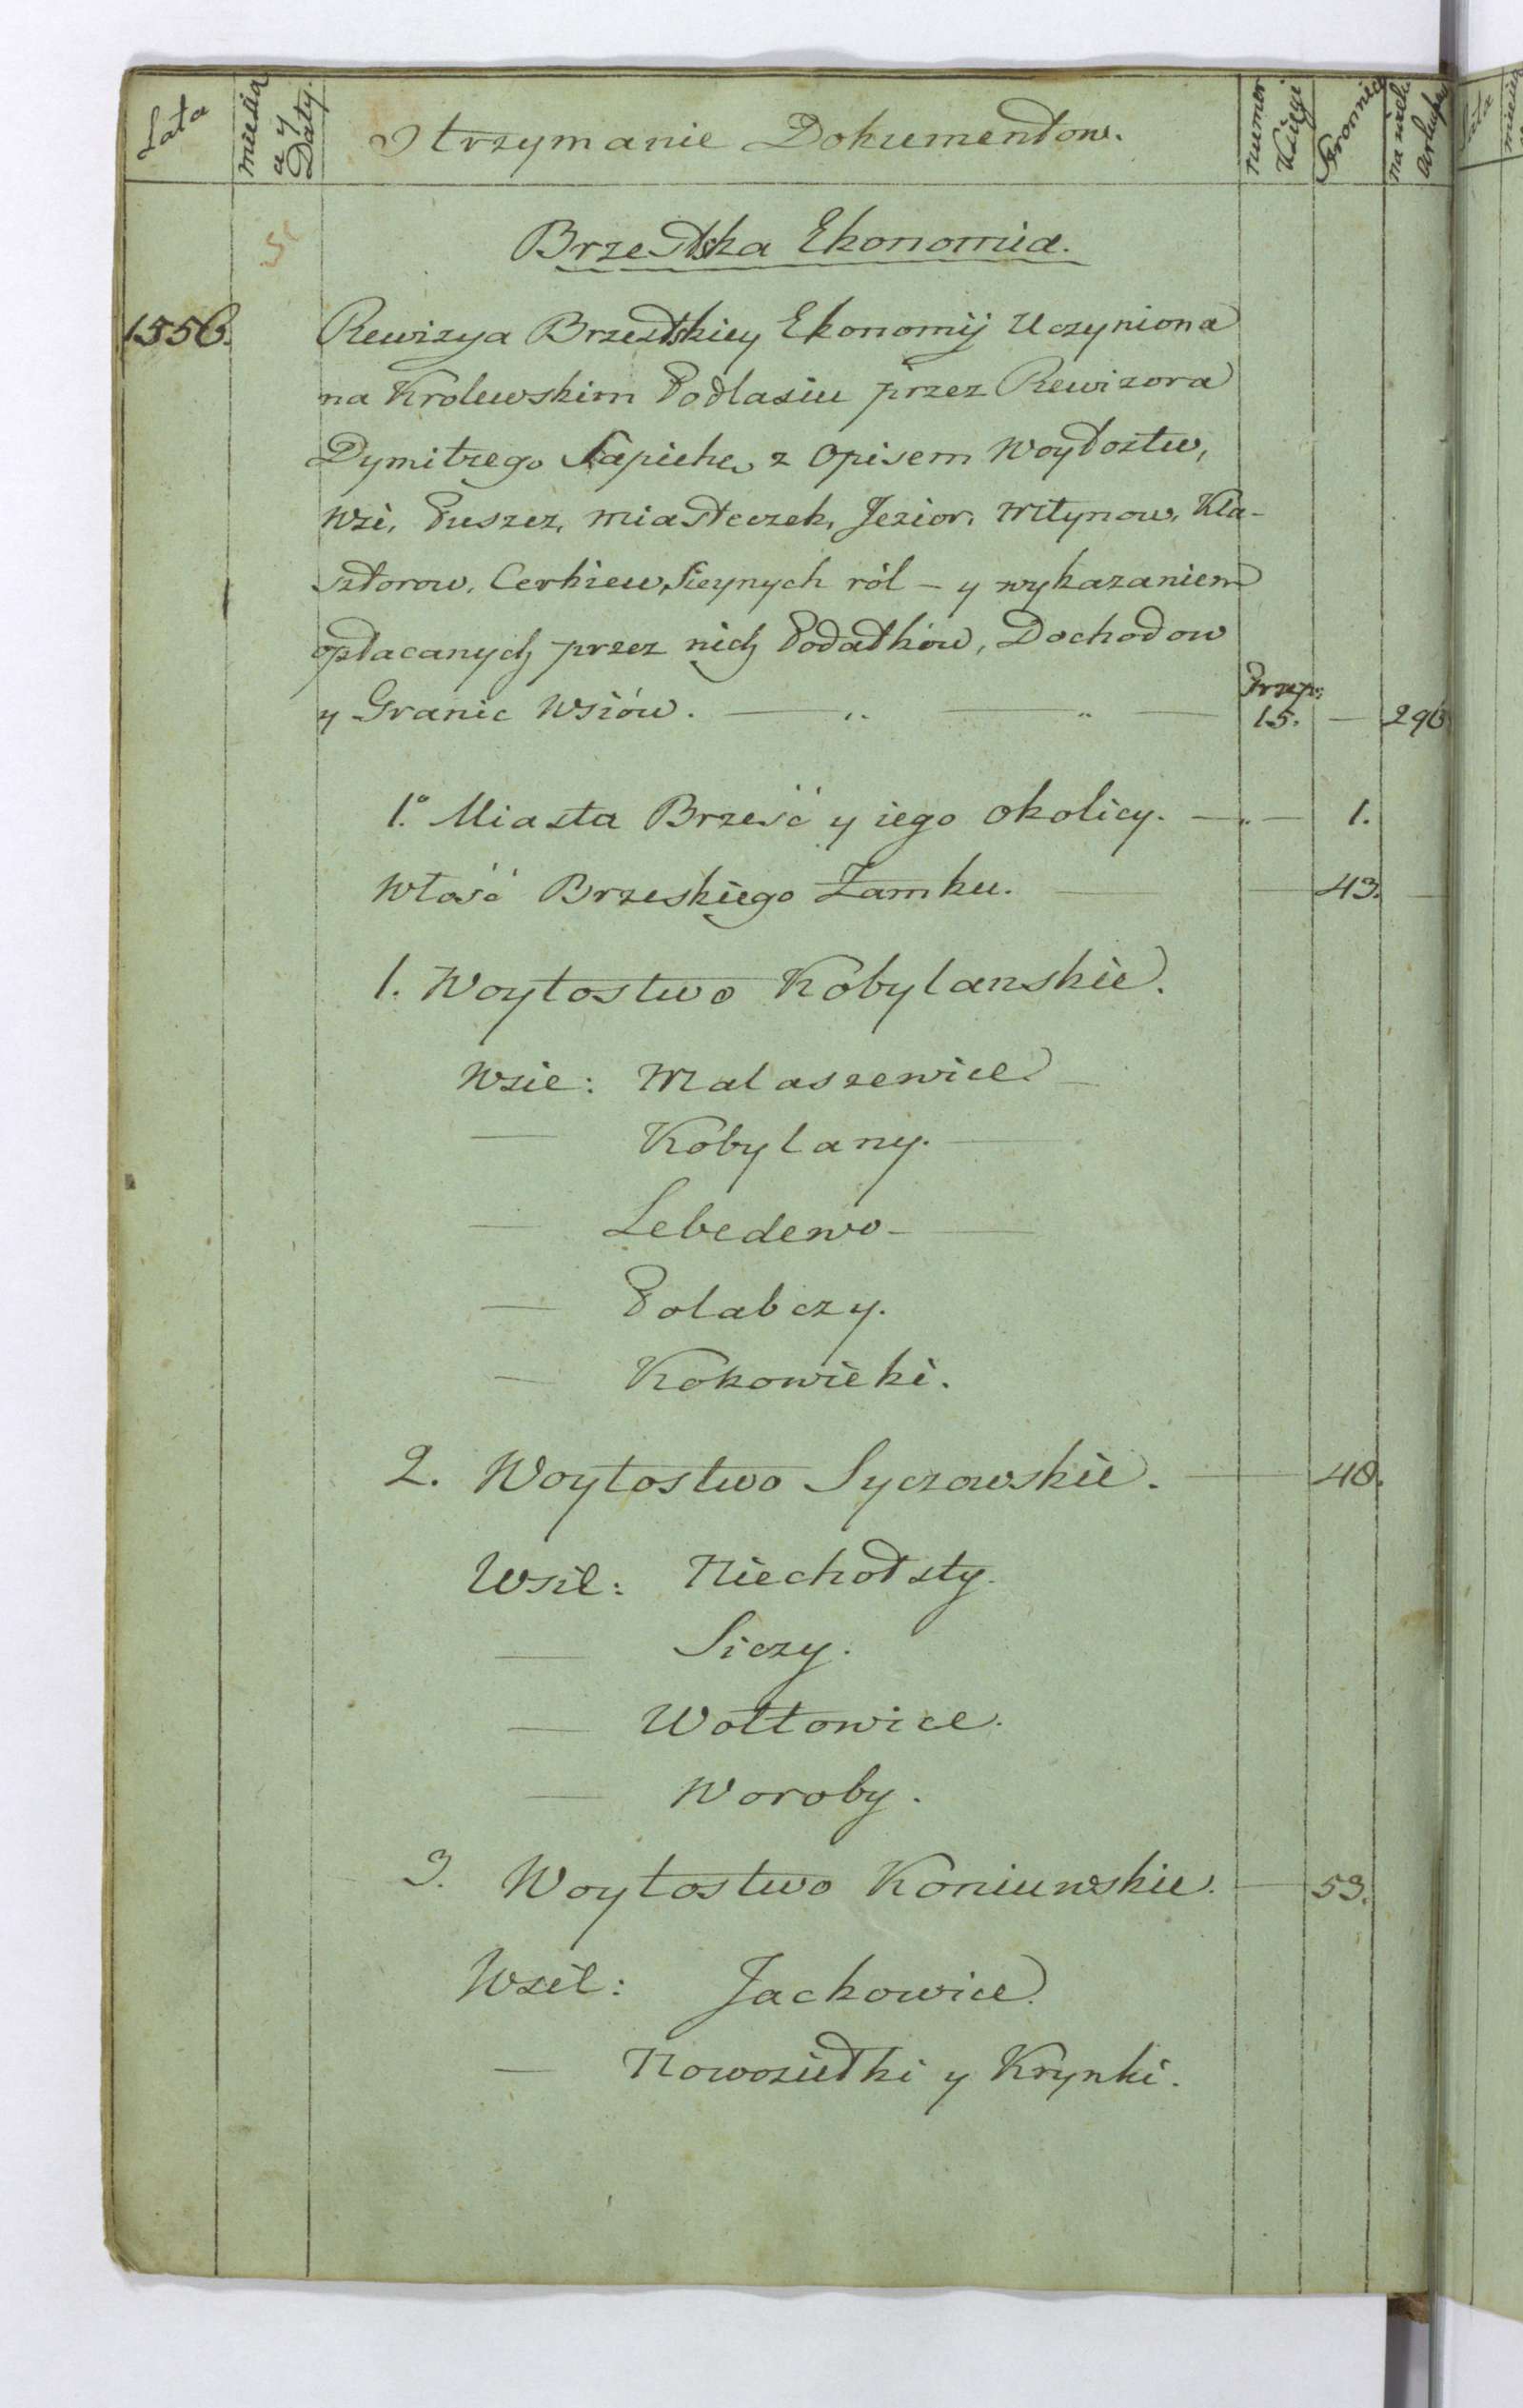 Lata
miesiąca y Daty.
Otrzymanie Dokumentow.
numer Księgi
Stronnica
na wiel. Arkuszy
Brzestska Ekonomia.
1556. Rewizya Brzestskiey Ekonomij Uczyniona
na Krolewskim Podlasiu przez Rewizora
Dymitrego Sapiehę z Opisem Woytostw,
Wsi, Puszcz, miasteczek, Jezior, Młynow, Kla-
sztorow, Cerkiew, Sieynych ról — y wykazaniem
opłacanych przez nich Podatków, Dochodow
y Granic Wsiów. — „ — „ — 15. — 296
1.° Miasta Brześć y iego okolicy. — „ — 1.
Włość Brzeskiego Zamku. — 43.
1. Woytostwo Kobylanskie.
Wsie: Malaszewice —
— Kobylany. —
— Lebedewo — —
— Polabczy.
— Kokowieki.
2. Woytostwo Syczowskie. — 48.
Wsie: Niechołsty.
— Siczy.
— Wołtowice.
— Woroby.
3. Woytostwo Koniuwskie. — 53.
Wsie: Jackowice.
— Nowosiełki y Krynki.